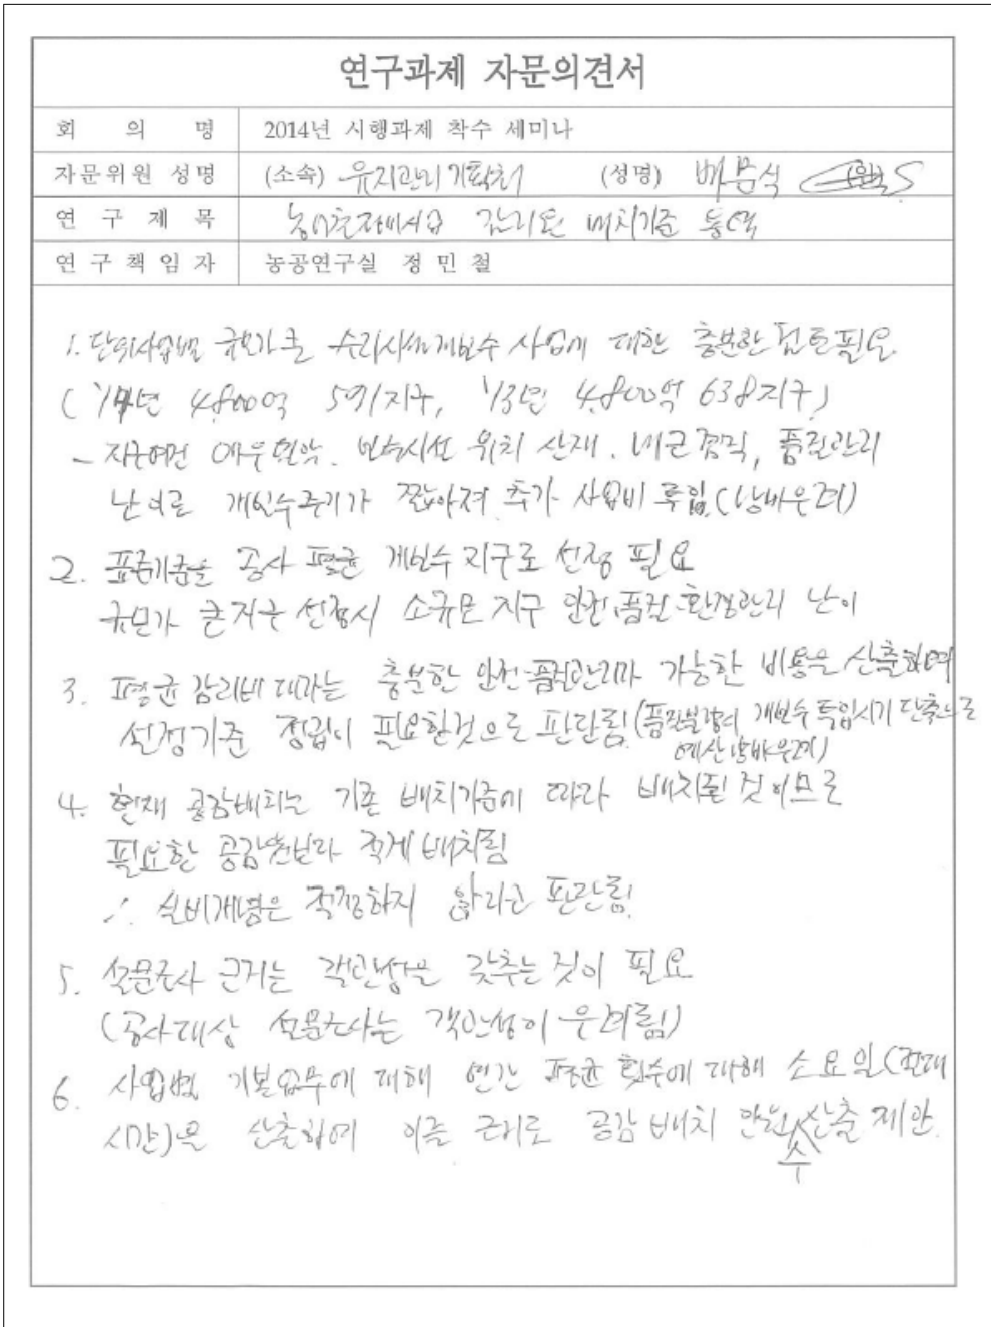 연구과제 자문의견서
회 의 명 2014년 시행과제 착수 세미나
자문위원 성명 (소속) 유지관리기획처 (성명) 배문식
연 구 제 목 농어촌정비사업 감리원 배치기준 동역
연 구 책 임 자 농공연구실 정 민 철
1. 단위사업별 규모가 큰 수리시설개보수 사업에 대한 충분한 검토필요
( '14년 4,800억 591지구, '13년 4,800억 638지구)
- 지구여건 매우 열악. 보수시설 위치 산재. 품질관리
난이로 개보수주기가 짧아져 추가 사업비 투입 (낭비우려)
2. 표준기준을 공사 평균 개보수 지구로 선정 필요
규모가 큰지구 선정시 소규모 지구 안전·품질·환경관리 난이
3. 평균 감리비 대가는 충분한 안전·품질관리가 가능한 비용을 산출하여
선정기준 정립이 필요할것으로 판단됨. (품질불량시 개보수 투입시기 단축으로
예산낭비우려)
4. 현재 공감배치는 기존 배치기준에 따라 배치된 것이므로
필요한 공감원보다 적게 배치됨
∴ 실비개념은 적정하지 않다고 판단됨.
5. 설문조사 근거는 객관성을 갖추는 것이 필요
(공사대상 설문조사는 객관성이 우려됨)
6. 사업별 기본업무에 대해 연간 평균 횟수에 대해 소요일(
시간)을 산출하여 이를 근거로 공감 배치 인원수 산출 제안.